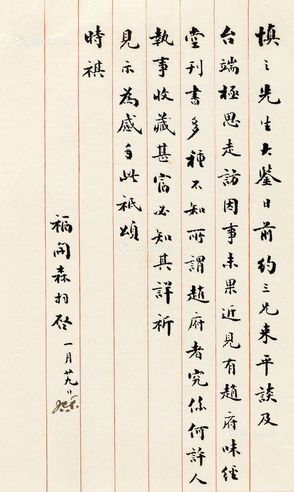 慎之先生大鉴日前约三兄来平谈及
台端極思走訪因事未果近見有趙府味經
堂刊書多種不知所謂趙府者究係何許人
執事收藏甚富必知其詳祈
見示為感手此祗頌
時祺
福開森拜啓 一月廿九日